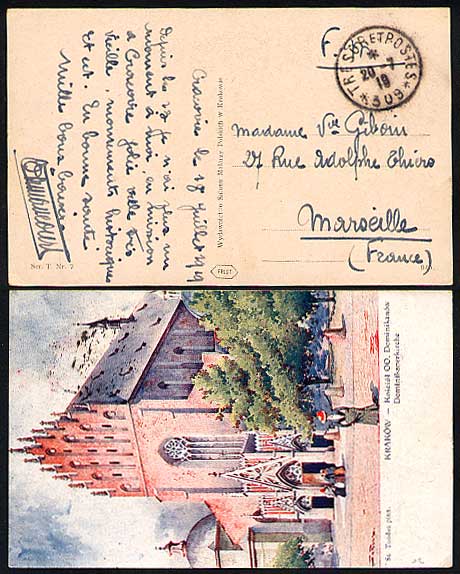 Cracovie le 18 Juillet 1919
Depuis le 13 je n'ai plus un
moment à moi en mission
à Cracovie jolie ville très
vieille, monuments historiques
Et ect. En bonne santé
Mille bons baisers
Wydawnictwo Salonu Malarzy Polskich w Krakowie
Ser. T. Nr. 7
F.M.
TRESOR ET POSTES
20 - 7
19
* 309 *
Madame Vve Giboin
27 Rue Adolphe Thiers
Marseille
(France)
KRAKÓW — Kościół OO. Dominikanów
Dominikanerkirche
St. Tondos pinx.